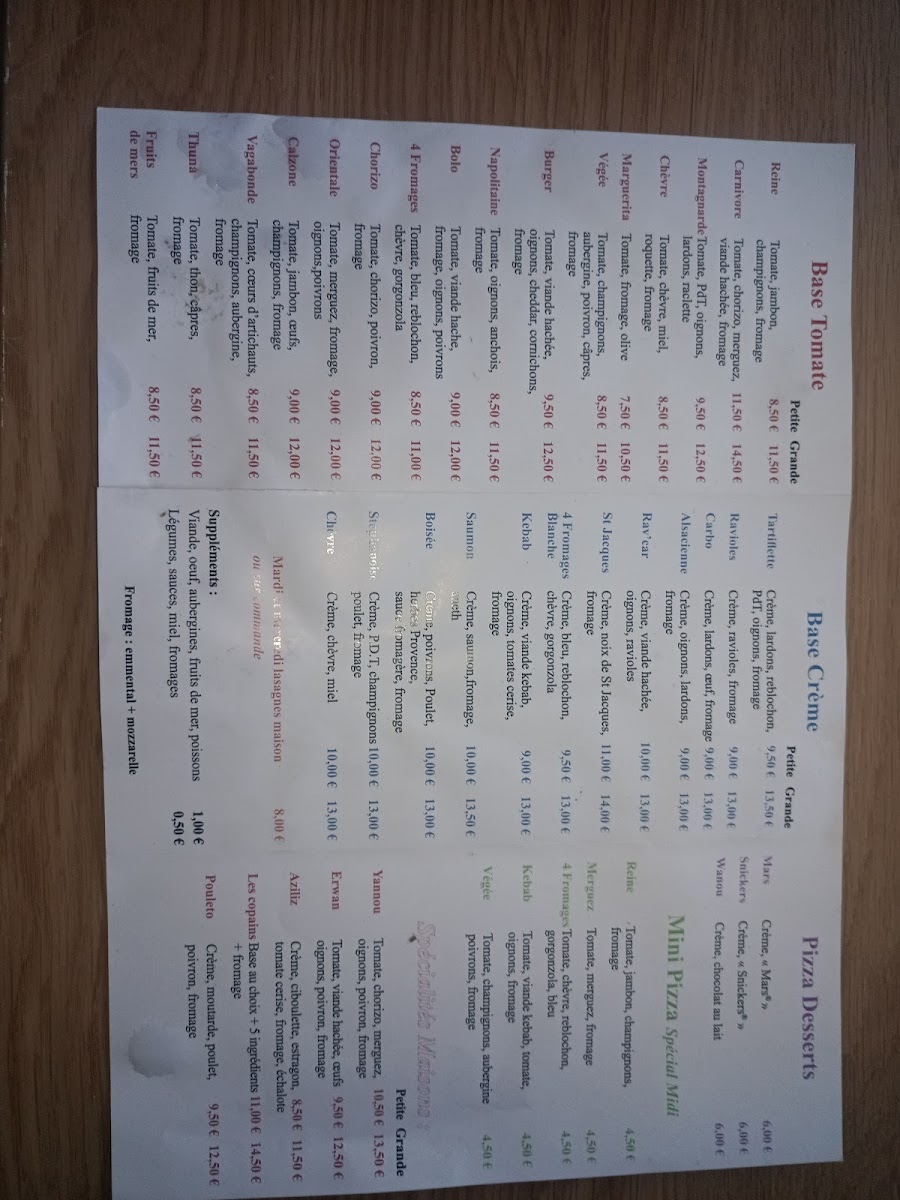 Base Tomate
Petite Grande
Reine Tomate, jambon, 8,50 € 11,50 €
champignons, fromage
Carnivore Tomate, chorizo, merguez, 11,50 € 14,50 €
viande hachée, fromage
Montagnarde Tomate, PdT, oignons, 9,50 € 12,50 €
lardons, raclette
Chèvre Tomate, chèvre, miel, 8,50 € 11,50 €
roquette, fromage
Marguerita Tomate, fromage, olive 7,50 € 10,50 €
Végée Tomate, champignons, 8,50 € 11,50 €
aubergine, poivron, câpres,
fromage
Burger Tomate, viande hachée, 9,50 € 12,50 €
oignons, cheddar, cornichons,
fromage
Napolitaine Tomate, oignons, anchois, 8,50 € 11,50 €
fromage
Bolo Tomate, viande hache, 9,00 € 12,00 €
fromage, oignons, poivrons
4 Fromages Tomate, bleu, reblochon, 8,50 € 11,00 €
chèvre, gorgonzola
Chorizo Tomate, chorizo, poivron, 9,00 € 12,00 €
fromage
Orientale Tomate, merguez, fromage, 9,00 € 12,00 €
oignons,poivrons
Calzone Tomate, jambon, œufs, 9,00 € 12,00 €
champignons, fromage
Vagabonde Tomate, cœurs d'artichauts, 8,50 € 11,50 €
champignons, aubergine,
fromage
Thuna Tomate, thon, câpres, 8,50 € 11,50 €
fromage
Fruits Tomate, fruits de mer, 8,50 € 11,50 €
de mers fromage
Base Crème
Petite Grande
Tartiflette Crème, lardons, reblochon, 9,50 € 13,50 €
PdT, oignons, fromage
Ravioles Crème, ravioles, fromage 9,00 € 13,00 €
Carbo Crème, lardons, œuf, fromage 9,00 € 13,00 €
Alsacienne Crème, oignons, lardons, 9,00 € 13,00 €
fromage
Rav'car Crème, viande hachée, 10,00 € 13,00 €
oignons, ravioles
St Jacques Crème, noix de St Jacques, 11,00 € 14,00 €
fromage
4 Fromages Crème, bleu, reblochon, 9,50 € 13,00 €
Blanche chèvre, gorgonzola
Kebab Crème, viande kebab, 9,00 € 13,00 €
oignons, tomates cerise,
fromage
Saumon Crème, saumon,fromage, 10,00 € 13,50 €
aneth
Boisée Crème, poivrons, Poulet, 10,00 € 13,00 €
herbes Provence,
sauce fromagère, fromage
Stephanoise Crème, P.D.T, champignons 10,00 € 13,00 €
poulet, fromage
Chèvre Crème, chèvre, miel 10,00 € 13,00 €
Mardi et mercredi lasagnes maison 8,00 €
ou sur commande
Suppléments :
Viande, oeuf, aubergines, fruits de mer, poissons 1,00 €
Légumes, sauces, miel, fromages 0,50 €
Fromage : emmental + mozzarelle
Pizza Desserts
Mars Crème, « Mars® » 6,00 €
Snickers Crème, « Snickers® » 6,00 €
Wanou Crème, chocolat au lait 6,00 €
Mini Pizza Spécial Midi
Reine Tomate, jambon, champignons, 4,50 €
fromage
Merguez Tomate, merguez, fromage 4,50 €
4 Fromages Tomate, chèvre, reblochon, 4,50 €
gorgonzola, bleu
Kebab Tomate, viande kebab, tomate, 4,50 €
oignons, fromage
Végée Tomate, champignons, aubergine 4,50 €
poivrons, fromage
Spécialités Maisons :
Petite Grande
Yannou Tomate, chorizo, merguez, 10,50 € 13,50 €
oignons, poivron, fromage
Erwan Tomate, viande hachée, œufs 9,50 € 12,50 €
oignons, poivron, fromage
Aziliz Crème, ciboulette, estragon, 8,50 € 11,50 €
tomate cerise, fromage, échalote
Les copains Base au choix + 5 ingrédients 11,00 € 14,50 €
+ fromage
Pouleto Crème, moutarde, poulet, 9,50 € 12,50 €
poivron, fromage